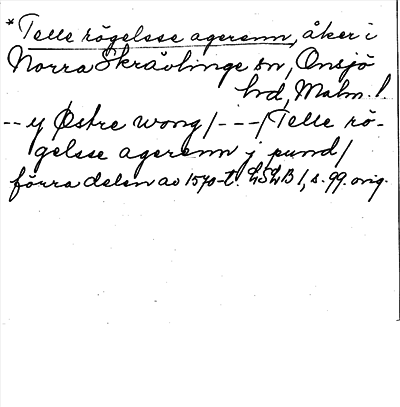 *Telle rögelsse agerenn, åker i
Norra Skrävlinge sn, Onsjö
hd, Malm. l.
-- y Østre wong / --- / Telle rö-
gelsse agerenn j pund /
förra delen av 1570-t. LSLB 1, s. 99. orig.